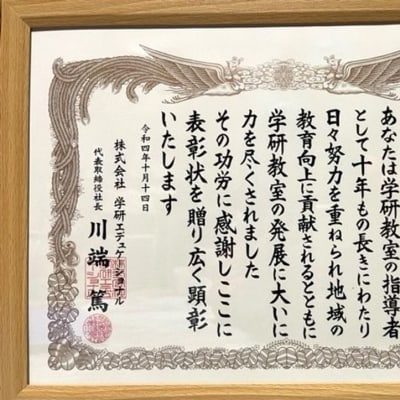 あなたは学研教室の指導者
として十年もの長きにわたり
日々努力を重ねられ地域の
教育向上に貢献されるとともに
学研教室の発展に大いに
力を尽くされました
その功労に感謝しここに
表彰状を贈り広く顕彰
いたします
令和四年十月十四日
株式会社 学研エデュケーショナル
代表取締役社長 川端 篤